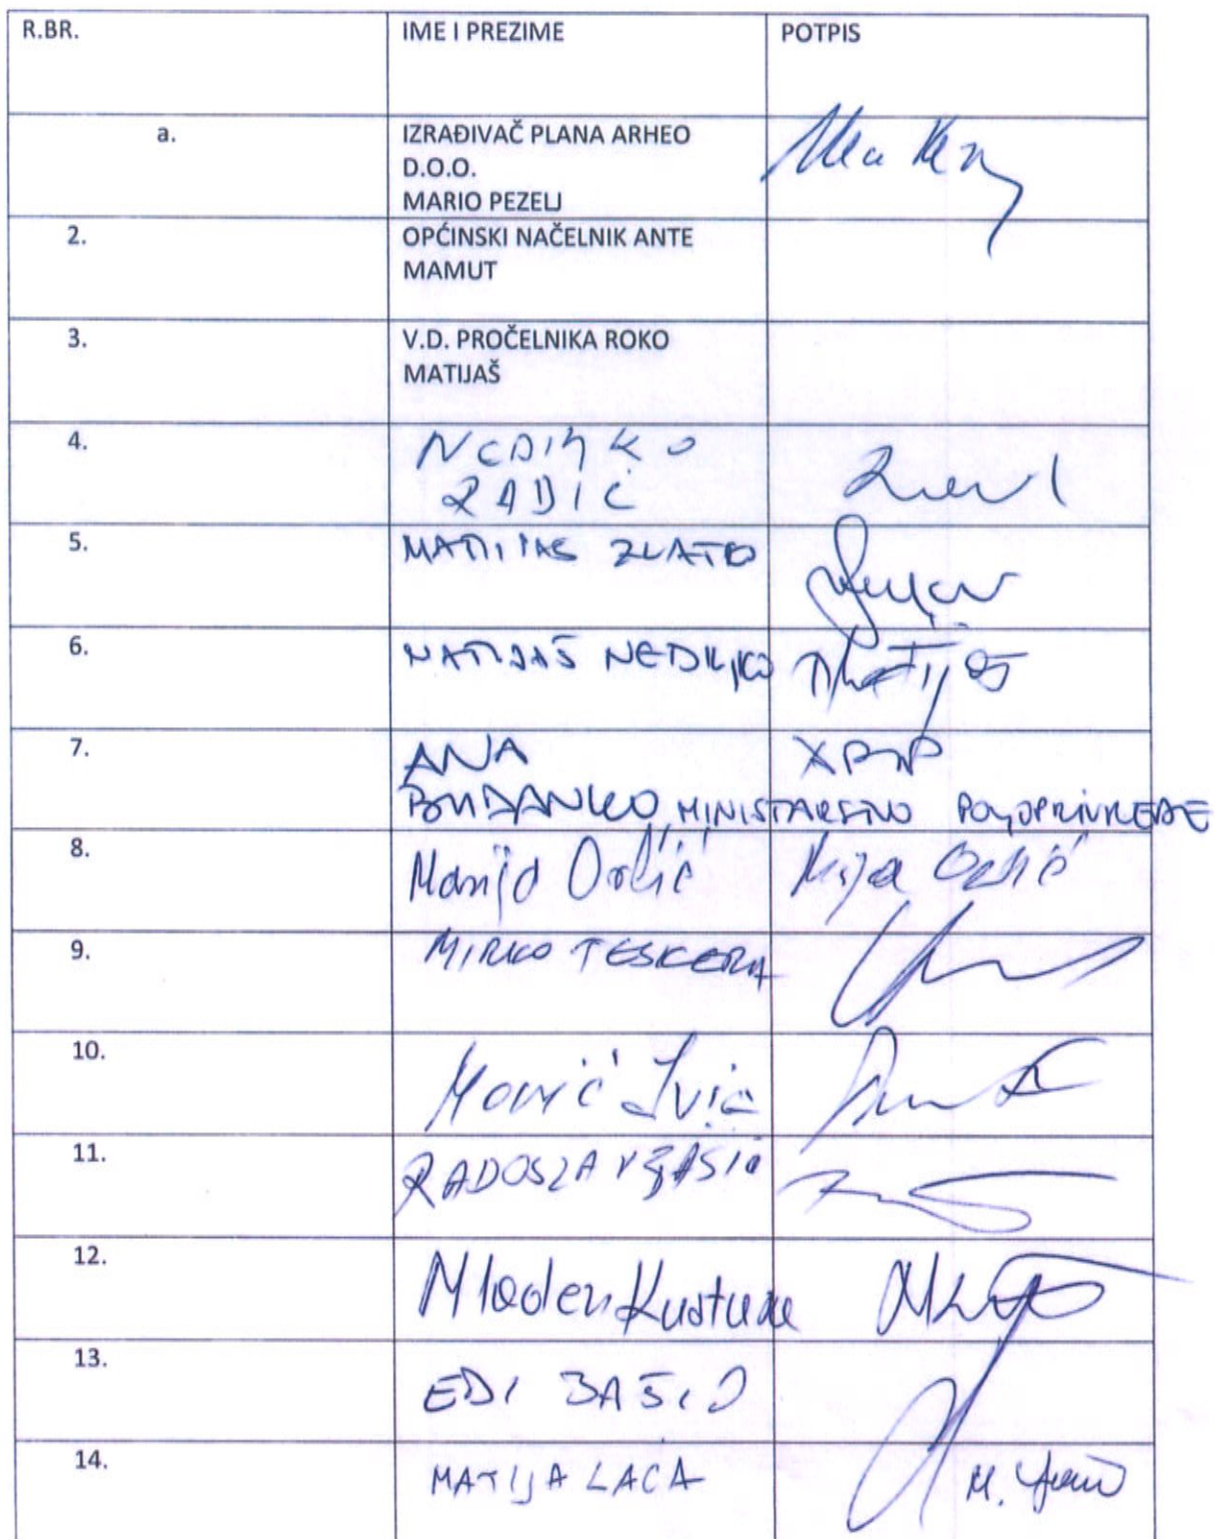 R.BR. IME I PREZIME POTPIS
a. IZRAĐIVAČ PLANA ARHEO
D.O.O.
MARIO PEZELJ
2. OPĆINSKI NAČELNIK ANTE
MAMUT
3. V.D. PROČELNIKA ROKO
MATIJAŠ
4. NEDILJKO
RADIĆ
5. MATIJAS ZLATKO
6. MATIJAŠ NEDILJKO
7. ANA
MINISTARSTVO POLJOPRIVREDE
8. Marija Orlić
9. MIRKO TESKERA
10. Ivica
11. RADOSLAV BAŠIĆ
12. Mladen
13. EDI BAŠIĆ
14. MATIJA LACA